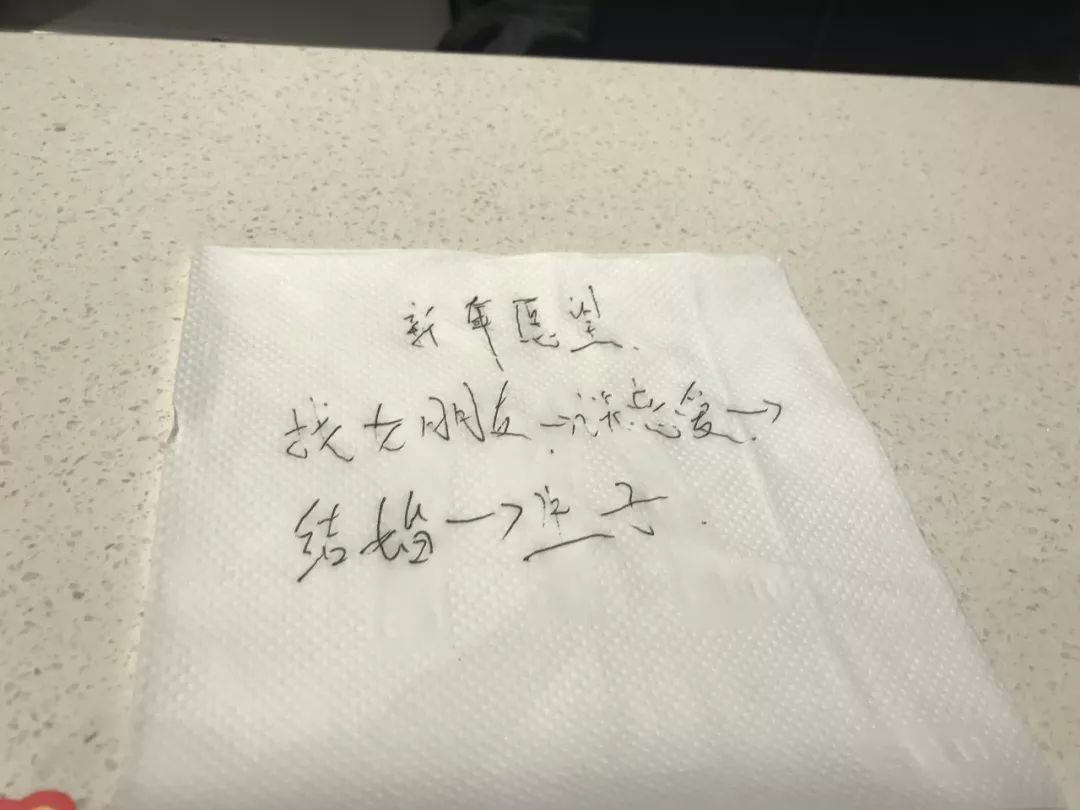 新年愿望
找女朋友→谈恋爱→
结婚→生子.